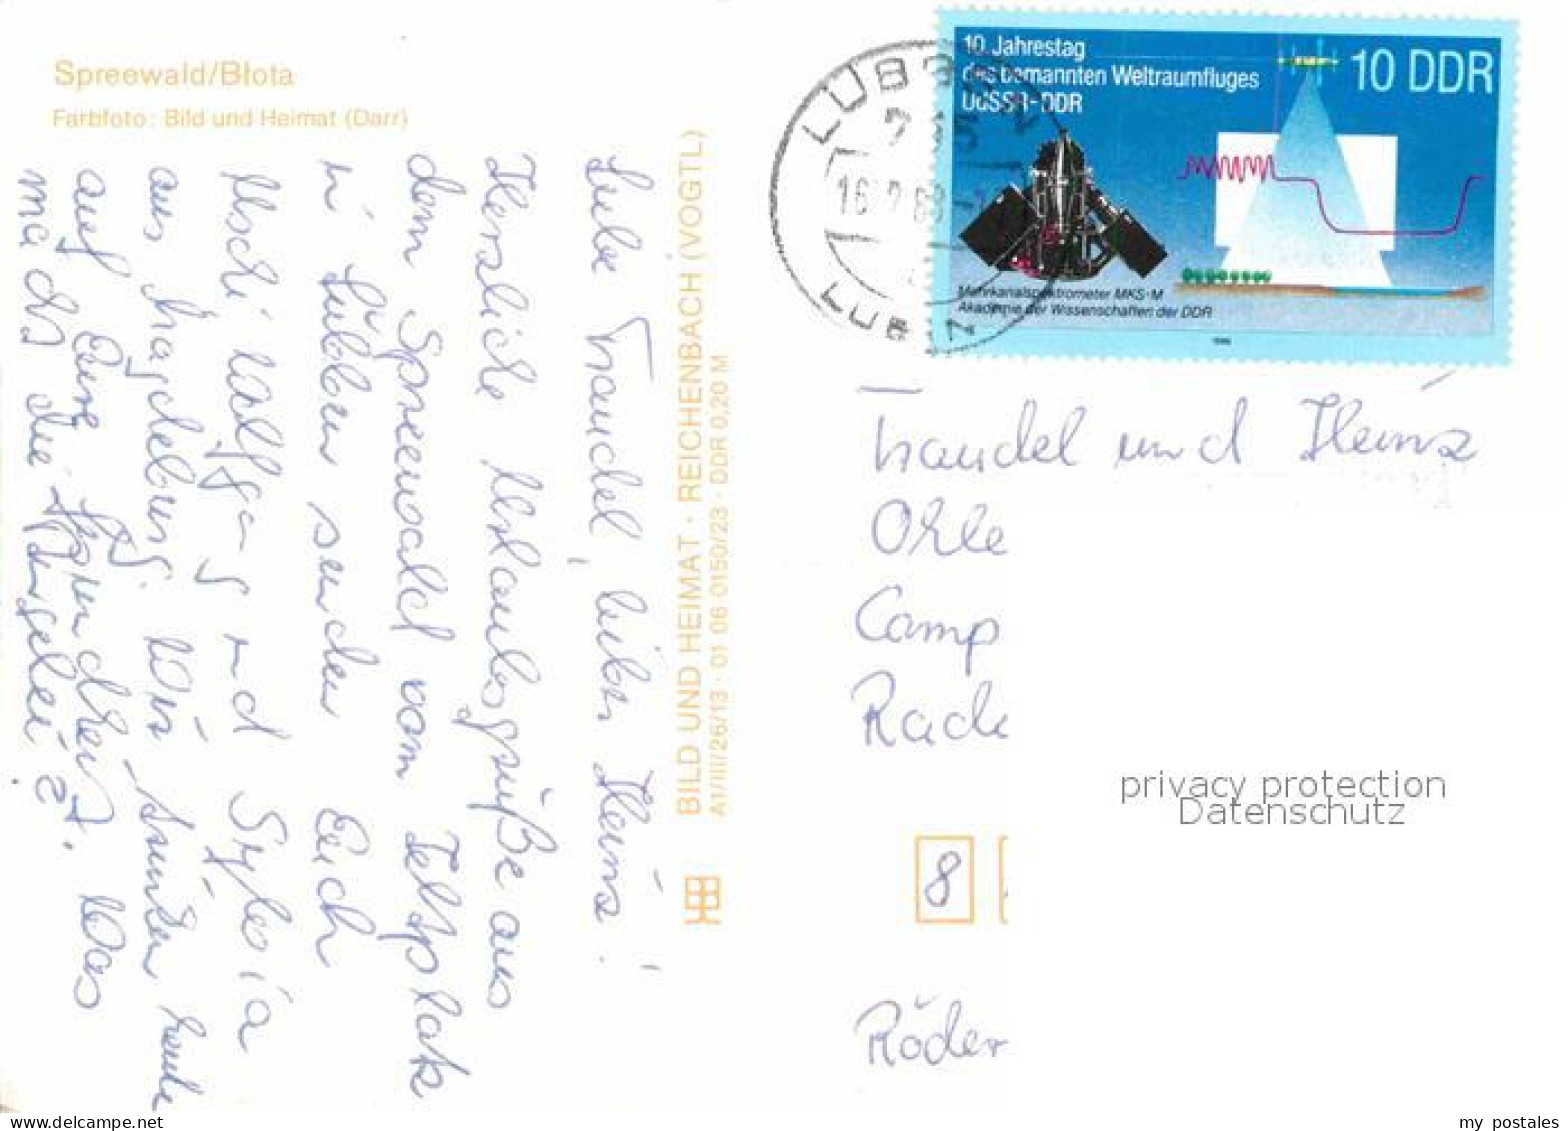 Spreewald/Błota
Farbfoto: Bild und Heimat (Darr)
Liebe Traudel, lieber Heinz!
Herzliche Urlaubsgrüße aus
dem Spreewald vom Zeltplatz
in Lübben senden Euch
Uschi Wolfgang und Sylvia
aus Magdeburg. Wir trinken heute
auf Eure
macht die Angelei? Was
BILD UND HEIMAT · REICHENBACH (VOGTL)
A1/III/26/13 · 01 06 0150/23 · DDR 0,20 M
LÜBBEN
16.7.88
10. Jahrestag
des bemannten Weltraumfluges
UdSSR-DDR
10 DDR
Mehrkanalspektrometer MKS-M
Akademie der Wissenschaften der DDR
1988
Traudel und Heinz
Ohle
Camp
Rade
8
Röder
privacy protection
Datenschutz
my postales